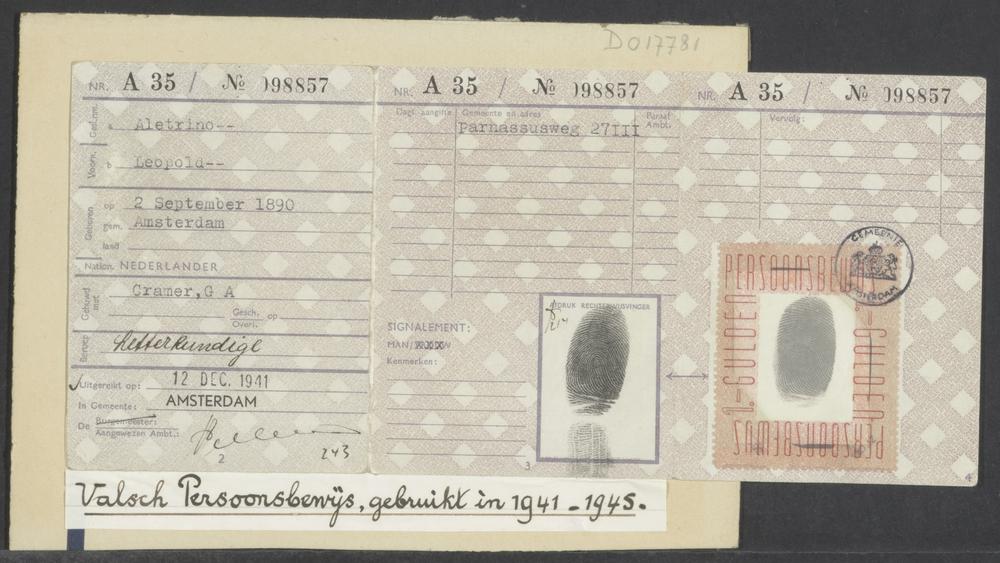 D017781
NR. A 35 / № 098857
Gesl.nm. a Aletrino--
Voorn. b Leopold--
Geboren op 2 September 1890
gem. Amsterdam
land
Nation. NEDERLANDER
Gehuwd met Cramer,G A
Gesch. op
Overl.
Beroep Letterkundige
Uitgereikt op: 12 DEC. 1941
In Gemeente: AMSTERDAM
De Burgemeester:
Aangewezen Ambt.:
2
243
NR. A 35 / № 098857
Dagt. aangifte Gemeente en adres Paraaf Ambt.
Parnassusweg 27III
SIGNALEMENT:
MAN/
Kenmerken:
AFDRUK RECHTER WIJSVINGER
3
NR. A 35 / № 098857
Vervolg:
GEMEENTE AMSTERDAM
PERSOONSBEWIJS
1.-GULDEN
1.-GULDEN
PERSOONSBEWIJS
4
Valsch Persoonsbewijs, gebruikt in 1941 - 1945.